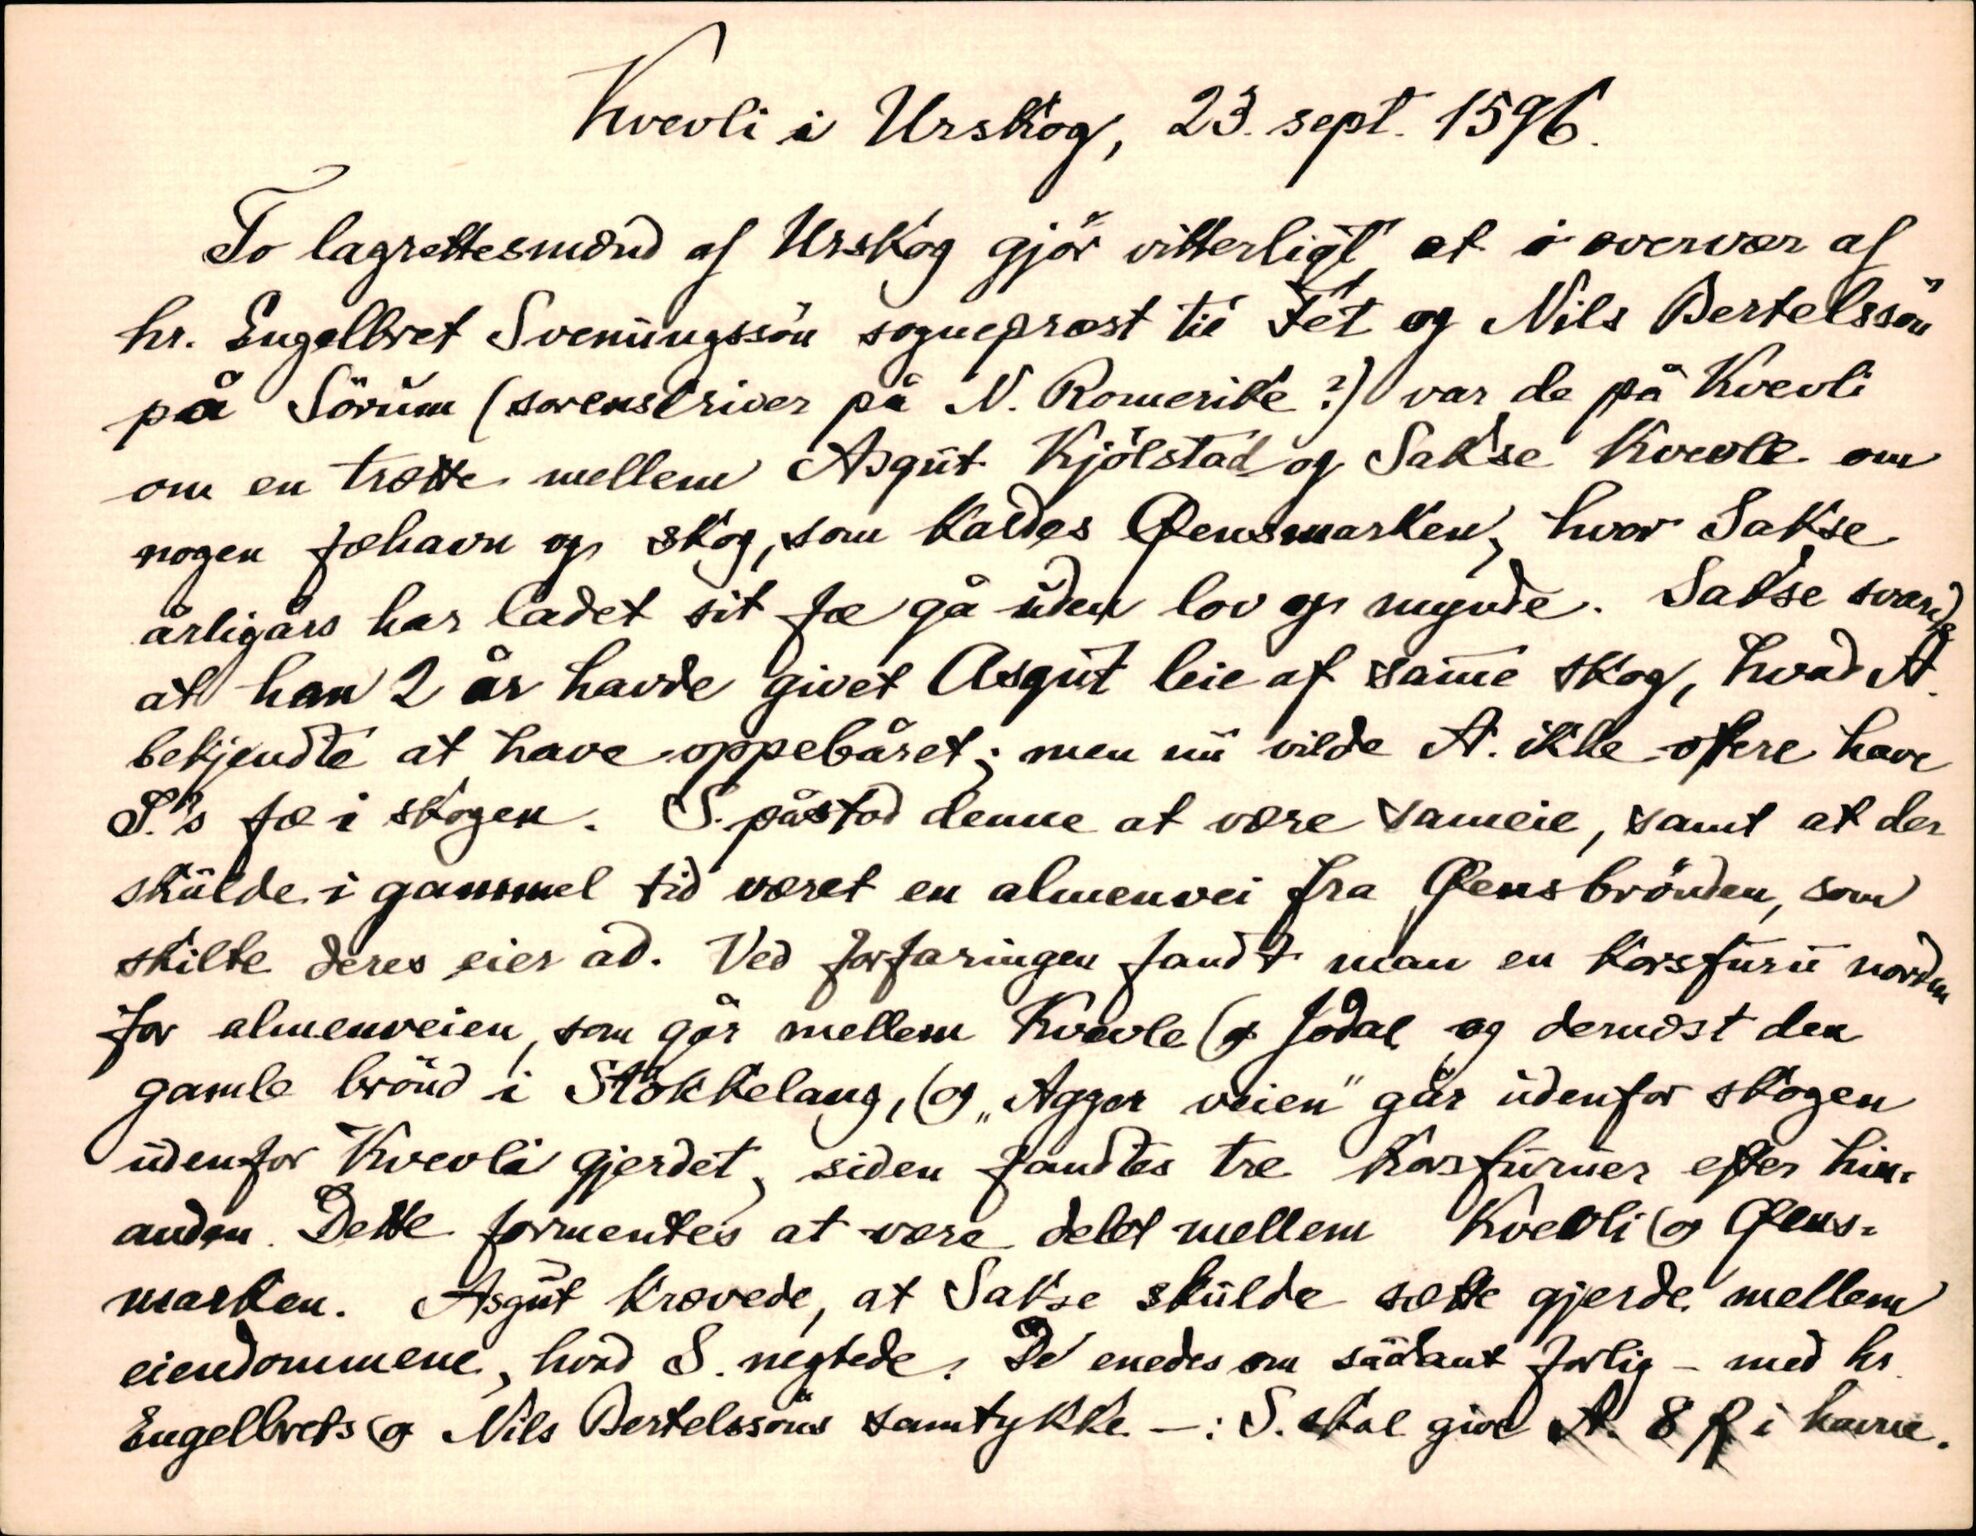 Kvevli i Urskog, 23. sept. 1596.
To lagrettesmænd af Urskog gjör vitterligt, at i overvær af
hr. Engelbret Svenungssön sognepræst til Fet og Nils Bertelssön
på Sörum (sorenskriver på N. Romerike?) var de på Kvevli
om en trætte mellem Asgut Kjölstad og Sakse Kvevle om
nogen fæhavn og skog, som kaldes Øensmarken, hvor Sakse
årligårs har ladet sit fæ gå uden lov og mynde. Sakse svarede
at han 2 år havde givet Asgut leie af samme skog, hvad A.
bekjendte at have oppebåret; men nu vilde A. ikke oftere have
S.'s fæ i skogen. S. påstod denne at være sameie, samt at der
skulde i gammel tid været en almenvei fra Øensbrönden, som
skilte deres eier ad. Ved forfaringen fandt man en korsfuru norden
for almenveien, som går mellem Kvevle og Jodal og dernæst den
gamle brönd i Stökkelang, og „Agger veien" går udenfor skogen
udenfor Kvevli gjerdet, siden fandtes tre korsfuruer efter hin-
anden. Dette formentes at være delet mellem Kvevli og Øens-
marken. Asgut krævede, at Sakse skulde sætte gjerde mellem
eiendommene, hvad S. negtede. De enedes om sådant forlig – med hr.
Engelbrets og Nils Bertelssöns samtykke –: S. skal give A. 8 ß i havne.